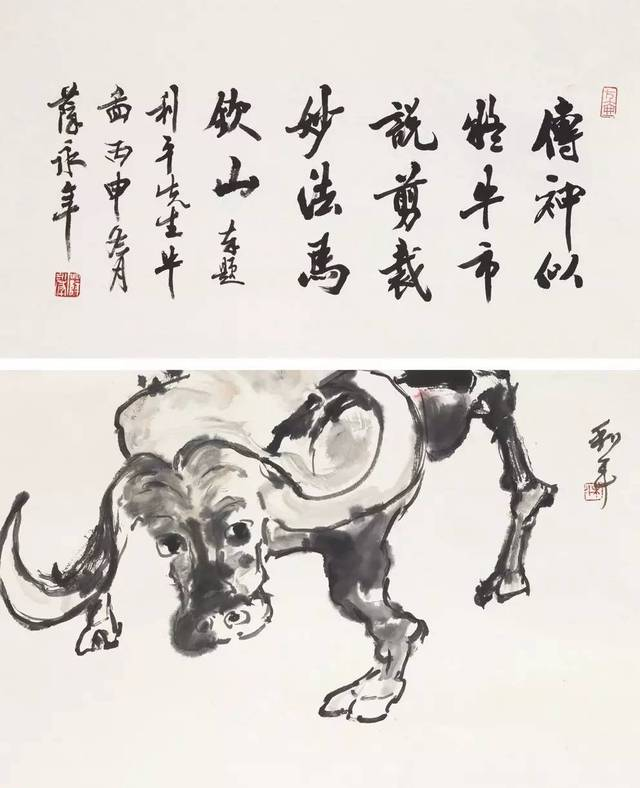 傳神似
牛市
說剪裁
妙法馬
欽山 奉題
利平先生牛
圖丙申冬月
薛永年
利平